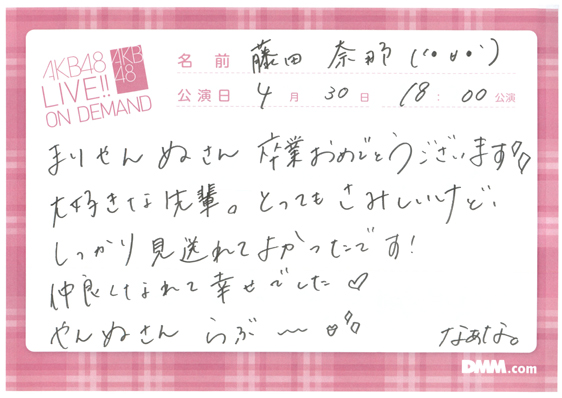 AKB48
LIVE!!
ON DEMAND
AKB
48
名前 藤田 奈那 (´•ㅂ•`)
公演日 4月 30日 18:00公演
まりやんぬさん 卒業おめでとうございます♡♡
大好きな先輩。とってもさみしいけど、
しっかり見送れてよかったです!
仲良くなれて幸せでした♡
やんぬさん らぶ〜♡♡
なぁな。
DMM.com